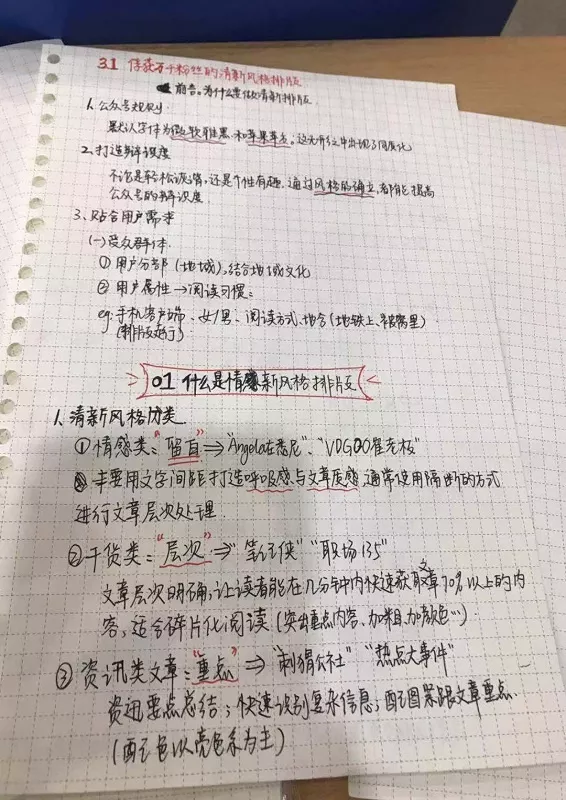 31 俘获万千粉丝的清新风格排版
前言。为什么要做清新排版
1. 公众号规则
默认字体为微软雅黑和苹果苹方。这无形之中出现了同质化
2. 打造辨识度
不论是轻松诙谐,还是个性有趣,通过风格的确立,都能提高
公众号的辨识度
3、贴合用户需求
(一)受众群体
① 用户分部(地域),结合地域文化
② 用户属性→阅读习惯:
eg:手机客户端、女/男、阅读方式、场合(地铁上、被窝里)
(排版越行)
01 什么是情感新风格排版
1. 清新风格分类
①情感类:“留白”⇒“Angela在悉尼”、“VDGOO崔老板”
主要用文字间距打造呼吸感与文章质感,通常使用隔断的方式
进行文章层次处理
②干货类:“层次”⇒“笔记侠”“职场135”
文章层次明确,让读者能在几分钟内快速获取文章70%以上的内
容,适合碎片化阅读(突出重点内容、加粗、加颜色…)
③ 资讯类文章:“重点”⇒“刺猬公社”“热点大事件”
资讯要点总结;快速识别复杂信息;配图紧跟文章重点.
(配色以亮色系为主)